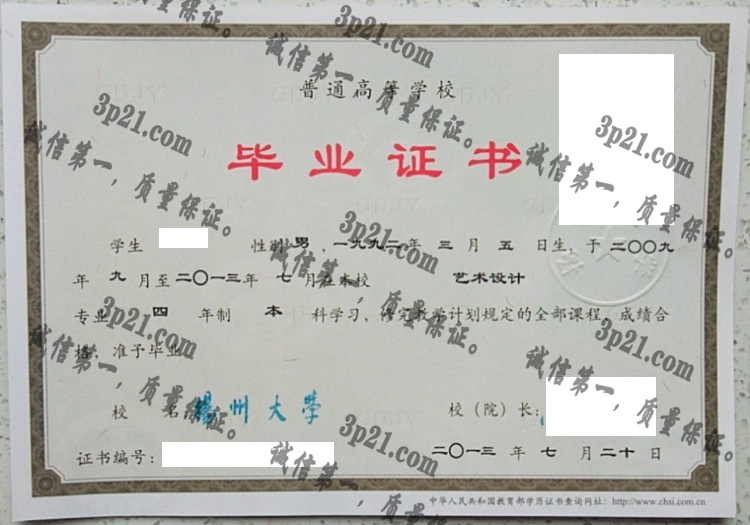 普通高等学校
毕业证书
学生 性别 男，一九九二年 三月 五日生，于二〇〇九
年 九月至二〇一三年 七月在本校 艺术设计
专业 四 年制 本 科学习，修完教学计划规定的全部课程，成绩合
格，准予毕业
校 名：扬州大学 校（院）长：
证书编号： 二〇一三年 七月二十日
中华人民共和国教育部学历证书查询网址：http://www.chsi.com.cn
3p21.com
诚信第一，质量保证。
3p21.com
诚信第一，质量保证。
3p21.com
诚信第一，质量保证。
3p21.com
诚信第一，质量保证。
3p21.com
诚信第一，质量保证。
3p21.com
诚信第一，质量保证。
3p21.com
诚信第一，质量保证。
3p21.com
诚信第一，质量保证。